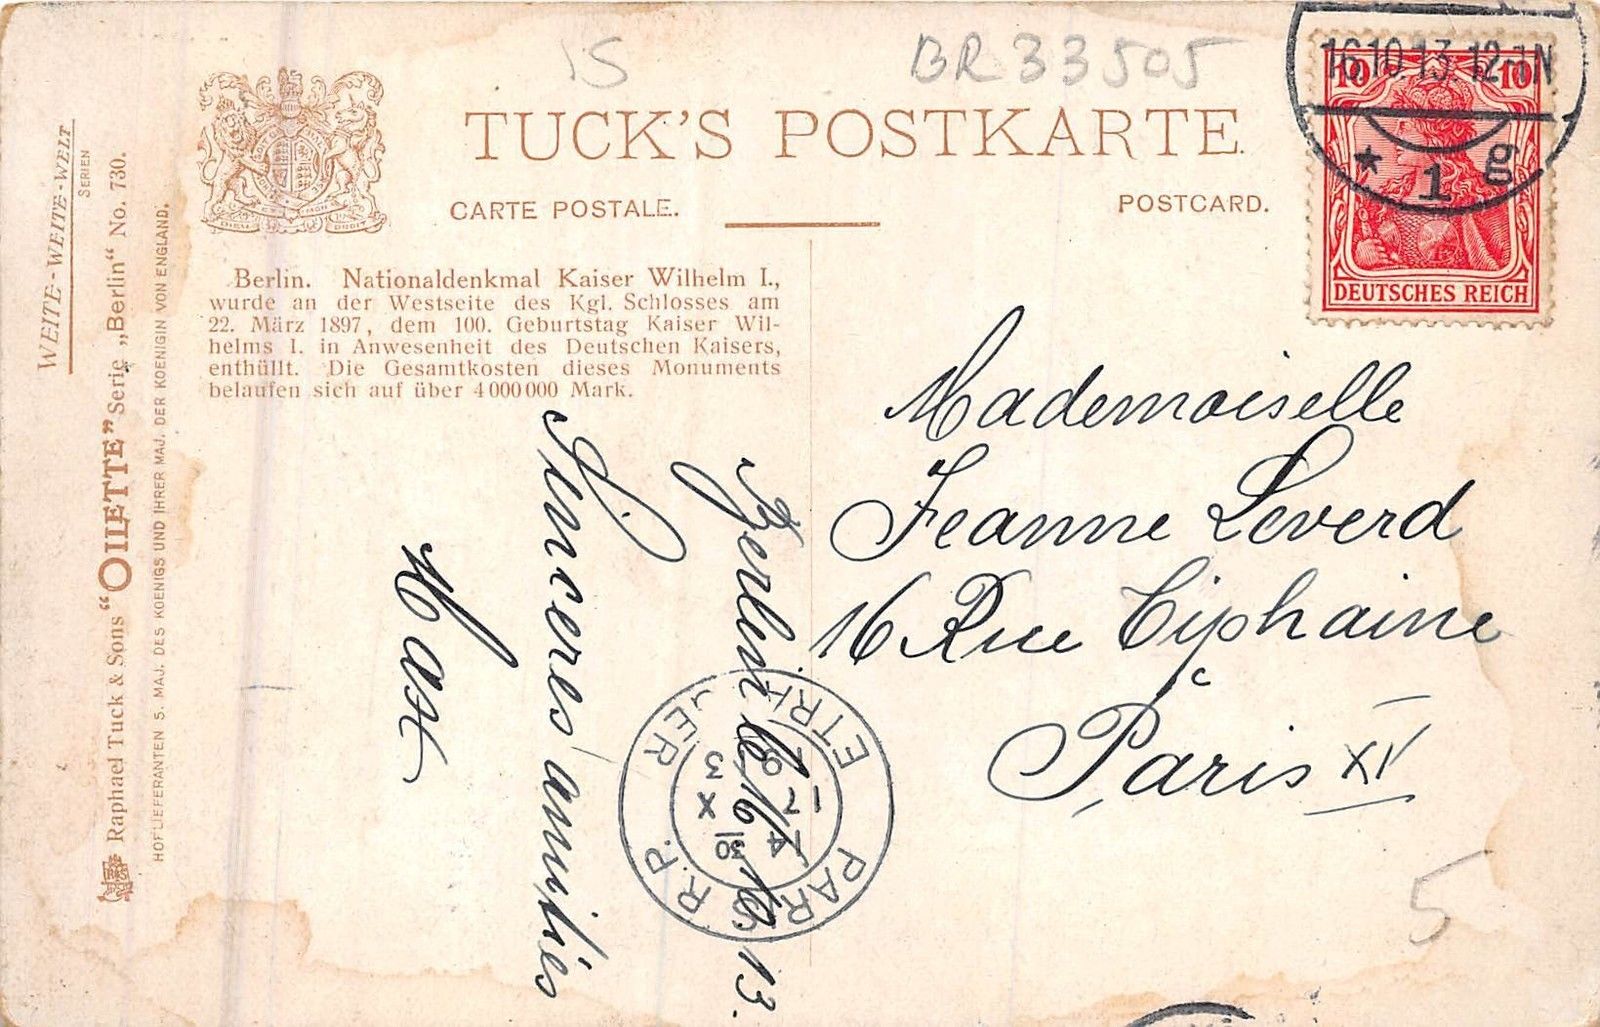 WEITE-WEITE-WELT
SERIEN
Raphael Tuck & Sons "OILETTE" Serie „Berlin“ No. 730.
HOFLIEFERANTEN S. MAJ. DES KOENIGS UND IHRER MAJ. DER KOENIGIN VON ENGLAND.
15
BR 33505
TUCK'S POSTKARTE.
CARTE POSTALE.
POSTCARD.
Berlin. Nationaldenkmal Kaiser Wilhelm I.,
wurde an der Westseite des Kgl. Schlosses am
22. März 1897, dem 100. Geburtstag Kaiser Wil-
helms I. in Anwesenheit des Deutschen Kaisers,
enthüllt. Die Gesamtkosten dieses Monuments
belaufen sich auf über 4 000 000 Mark.
16.10.13. 12-1N
* 1 g
10 10
DEUTSCHES REICH
Berlin le 16. 10. 13.
Sincères amitiés
Mademoiselle
Jeanne Leverd
16 Rue Tiphaine
Paris XV
PARIS R.P.
ETRANGER
5